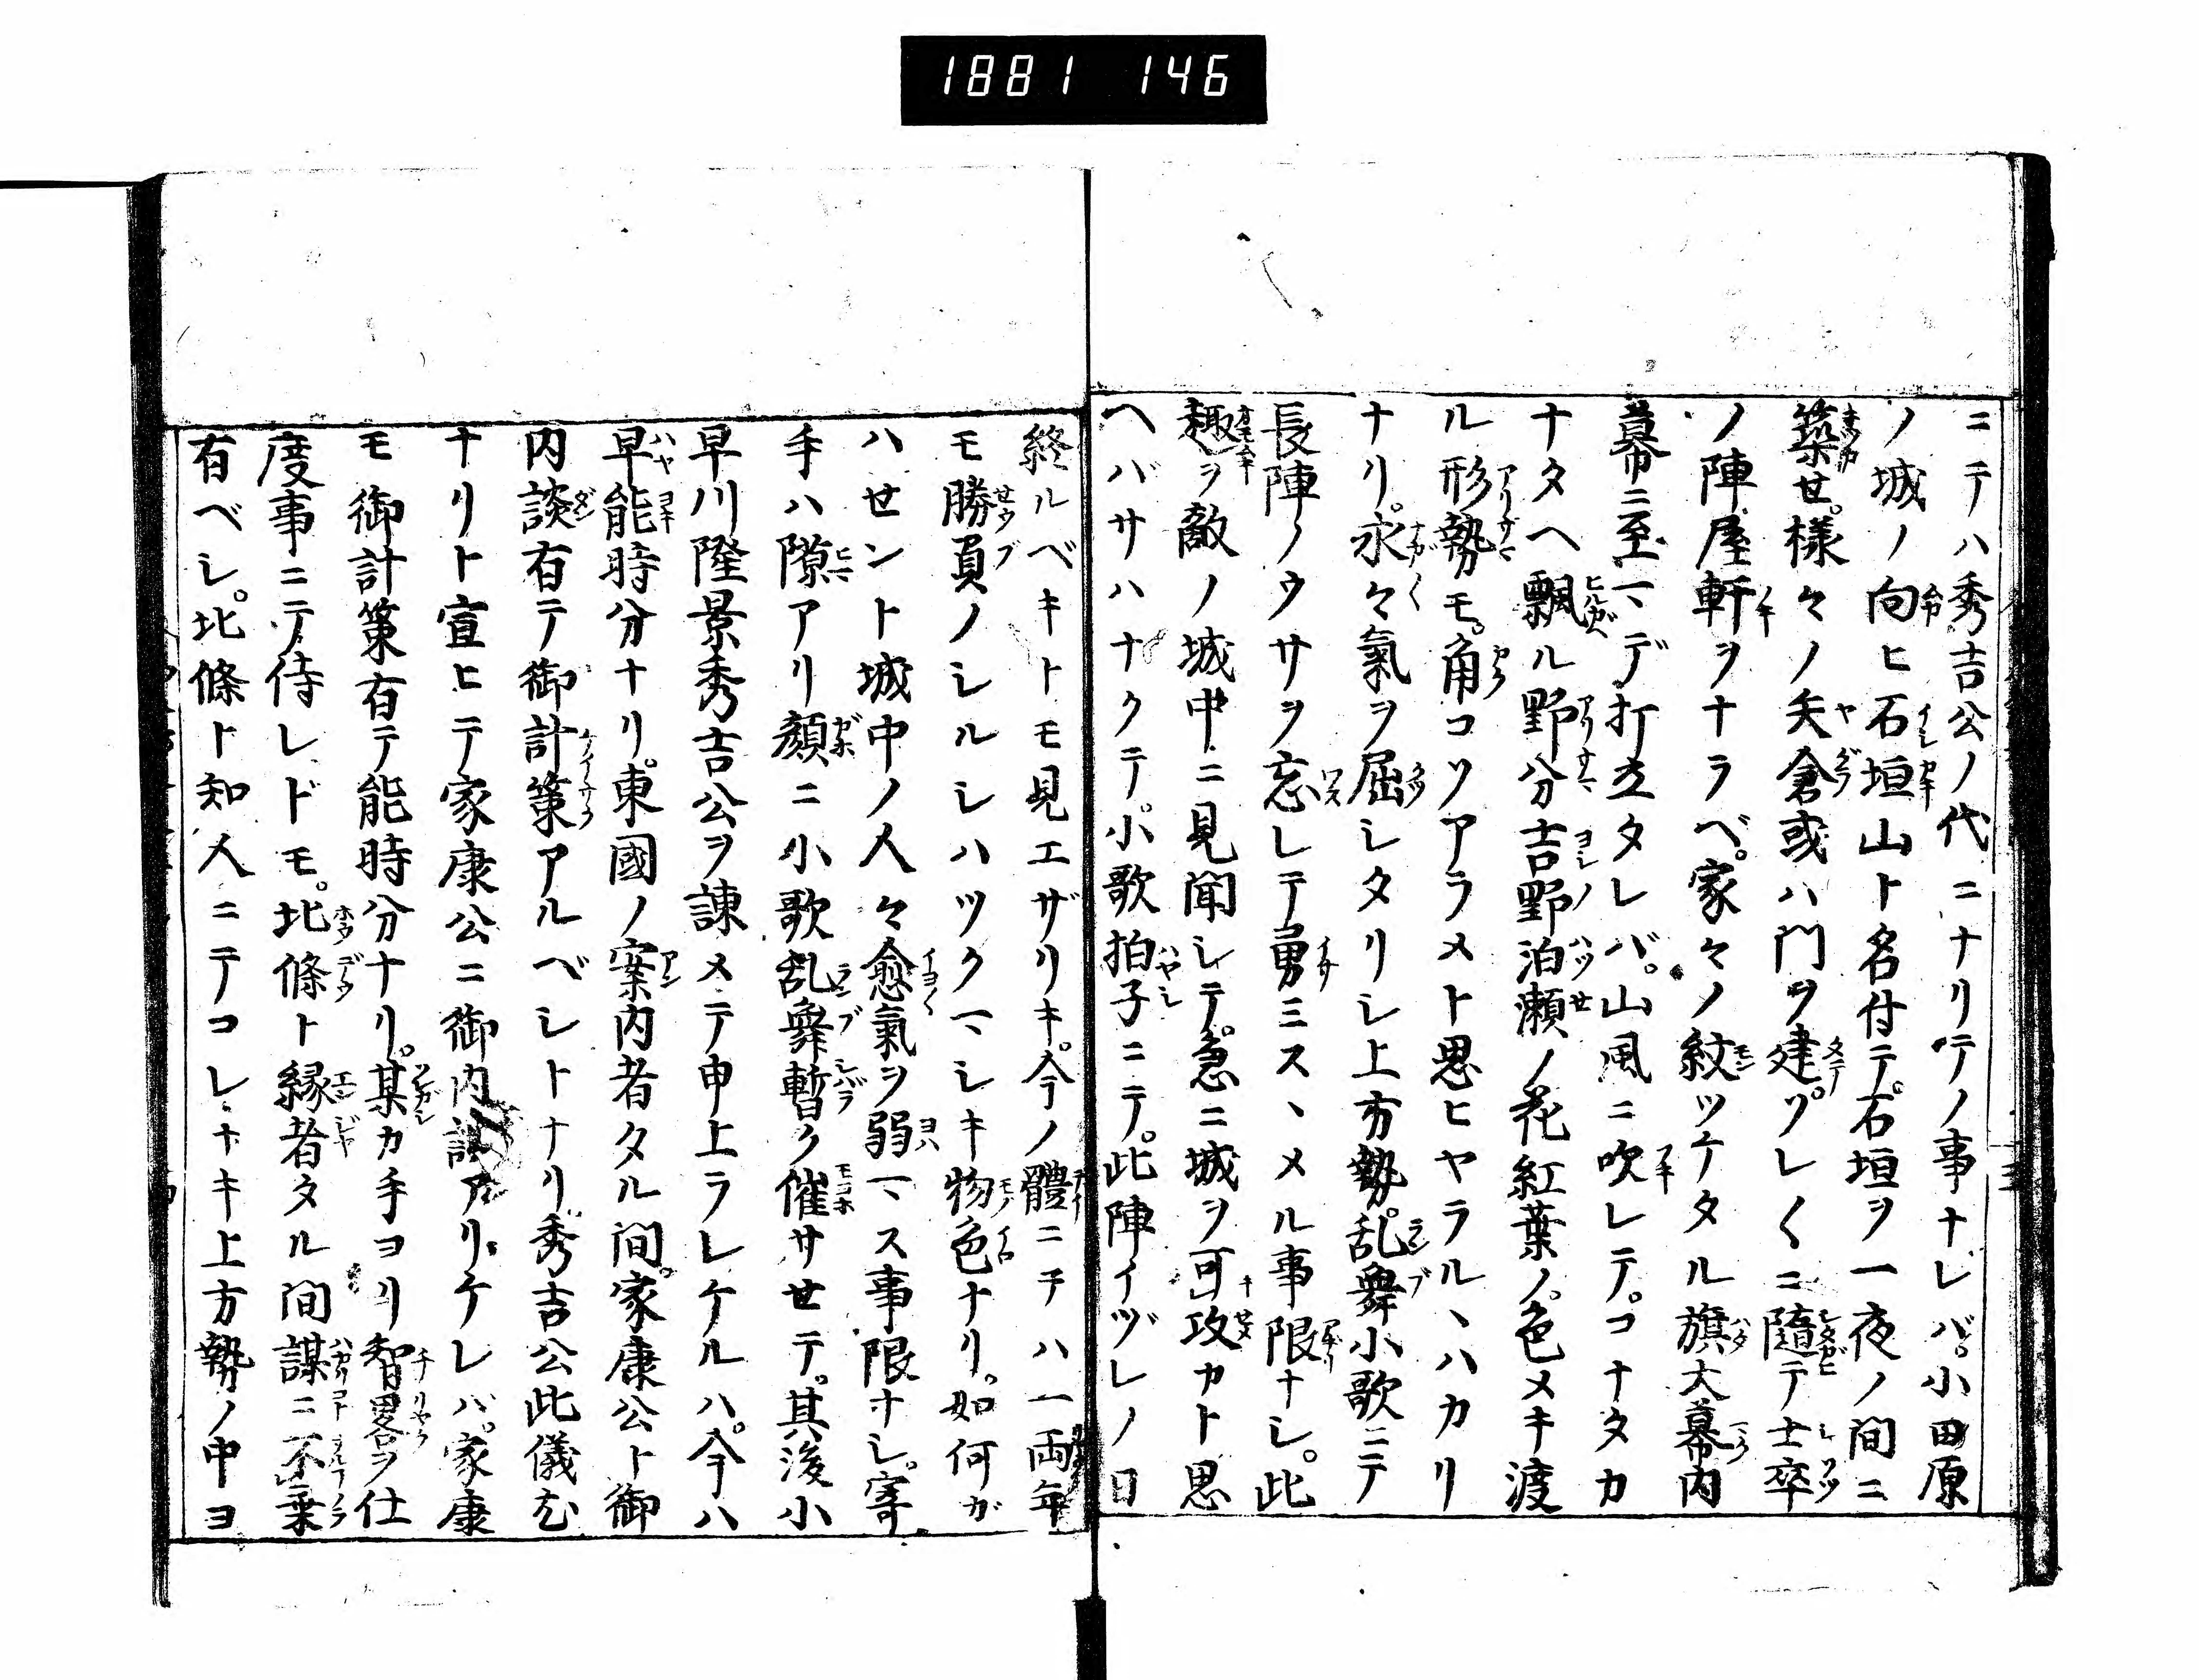 1881 146
ニテハ秀吉公ノ代ニナリテノ事ナレバ。小田原
ノ城ノ向ヒ石垣山ト名付テ。石垣ヲ一夜ノ間ニ
築せ。様々ノ矢倉或ハ門ヲ建ツ。レ〱ニ隨テ士卒
ノ陣屋軒ヲナラベ。家々ノ紋ツケタル旗大幕内
幕ニ至マデ打立タレバ。山風ニ吹レテ。コナタカ
ナタヘ飄ル野分吉野泊瀬ノ花紅葉ノ色メキ渡
ル形勢モ。角コソアラメト思ヒヤラルヽハカリ
ナリ。永々氣ヲ屈シタリシ上方勢。乱舞小歌ニテ
長陣ノウサヲ忘レテ勇ミスヽメル事限ナシ。此
趣ヲ敵ノ城中ニ見聞シテ。急ニ城ヲ可攻カト思
ヘバサハナクテ。小歌拍子ニテ。此陣イヅレノ日
終ルベキトモ見エザリキ。今ノ體ニテハ一両年
モ勝負ノシルシハツクマシキ物色ナリ。如何ガ
ハせント城中ノ人々愈氣ヲ弱マス事限ナシ。寄
手ハ隙アリ顔ニ小歌乱舞暫ク催サせテ。其後小
早川隆景秀吉公ヲ諌メテ申上ラレケルハ。今ハ
早能時分ナリ。東國ノ案内者タル間。家康公ト御
内談有テ御計策アルベシトナリ。秀吉公此儀尤
ナリト宣ヒテ家康公ニ御内談アリケレバ。家康
モ御計策有テ能時分ナリ。某カ手ヨリ智畧ヲ仕
度事ニテ侍レドモ。北條ト縁者タル間謀ニ不乗
有ベシ。北條ト知人ニテコレナキ上方勢ノ中ヨ